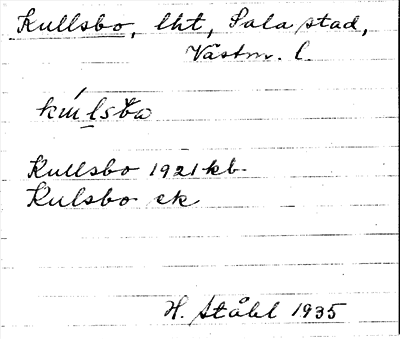 Kullsbo, lht, Sala stad,
Västm. l.
Kullsbo 1921 kb.
Kulsbo ek
H. Ståhl 1935